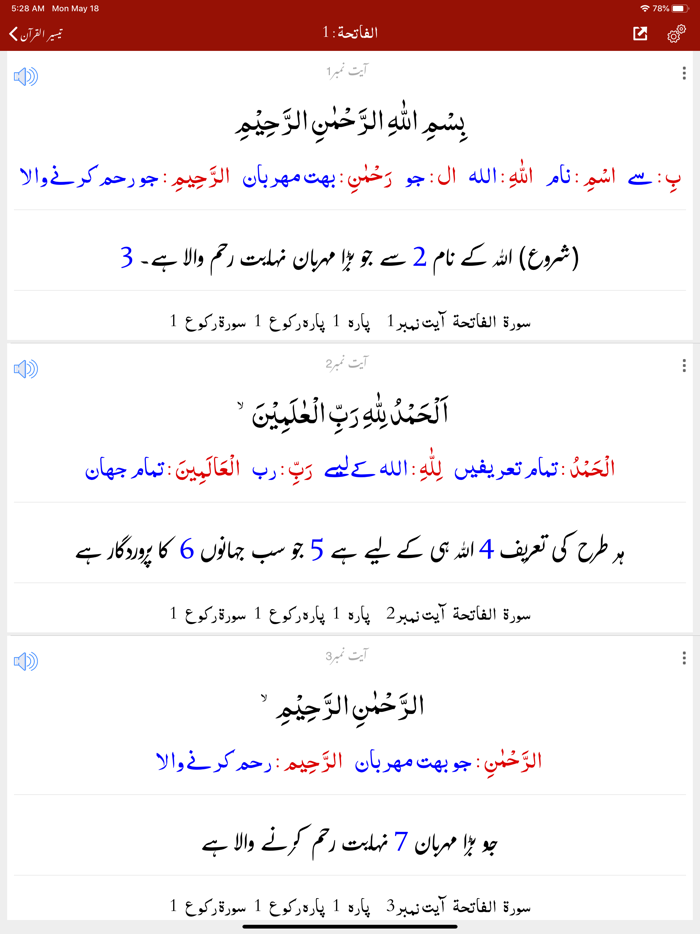 5:28 AM Mon May 18 78%
تیسیر القرآن الفاتحة : 1
آیت نمبر1
بِسْمِ اللّٰهِ الرَّحْمٰنِ الرَّحِيْمِ
بِ : سے اسْمِ : نام اللّٰهِ : الله ال : جو رَحْمٰنِ : بهت مهربان الرَّحِيمِ : جو رحم كرنے والا
(شروع) اللہ کے نام 2 سے جو بڑا مہربان نہایت رحم والا ہے۔ 3
سورة الفاتحة آیت نمبر1 پارہ 1 پارہ رکوع 1 سورة رکوع 1
آیت نمبر2
اَلْحَمْدُ لِلّٰهِ رَبِّ الْعٰلَمِيْنَ ۙ
الْحَمْدُ : تمام تعريفيں لِلّٰهِ : الله كے ليے رَبِّ : رب الْعَالَمِينَ : تمام جهان
ہر طرح کی تعریف 4 اللہ ہی کے لیے ہے 5 جو سب جہانوں 6 کا پروردگار ہے
سورة الفاتحة آیت نمبر2 پارہ 1 پارہ رکوع 1 سورة رکوع 1
آیت نمبر3
الرَّحْمٰنِ الرَّحِيْمِ ۙ
الرَّحْمٰنِ : جو بهت مهربان الرَّحِيم : رحم كرنے والا
جو بڑا مہربان 7 نہایت رحم کرنے والا ہے
سورة الفاتحة آیت نمبر3 پارہ 1 پارہ رکوع 1 سورة رکوع 1